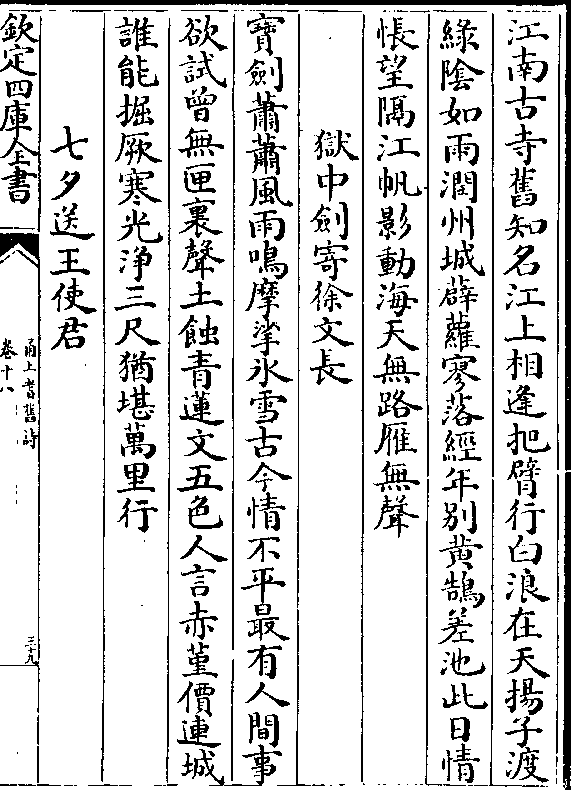 江南古寺舊知名江上相逢把臂行白浪在天揚子渡
綠陰如雨潤州城薜蘿寥落經年別黄鵠差池此日情
悵望隔江帆影動海天無路雁無聲
獄中劍寄徐文長
寶劍蕭蕭風雨鳴摩挲氷雪古今情不平最有人間事
欲試曾無匣裏聲土蝕青蓮文五色人言赤堇價連城
誰能掘厥寒光淨三尺猶堪萬里行
七夕送王使君
欽定四庫全書
甬上耆舊詩
卷十八
三十九